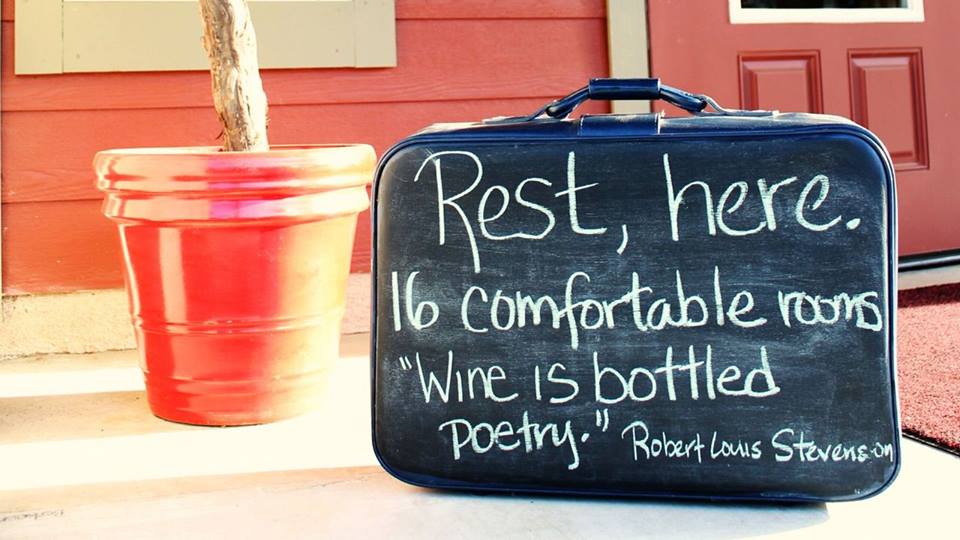 Rest, here.
16 comfortable rooms
"Wine is bottled
poetry." Robert Louis Stevenson